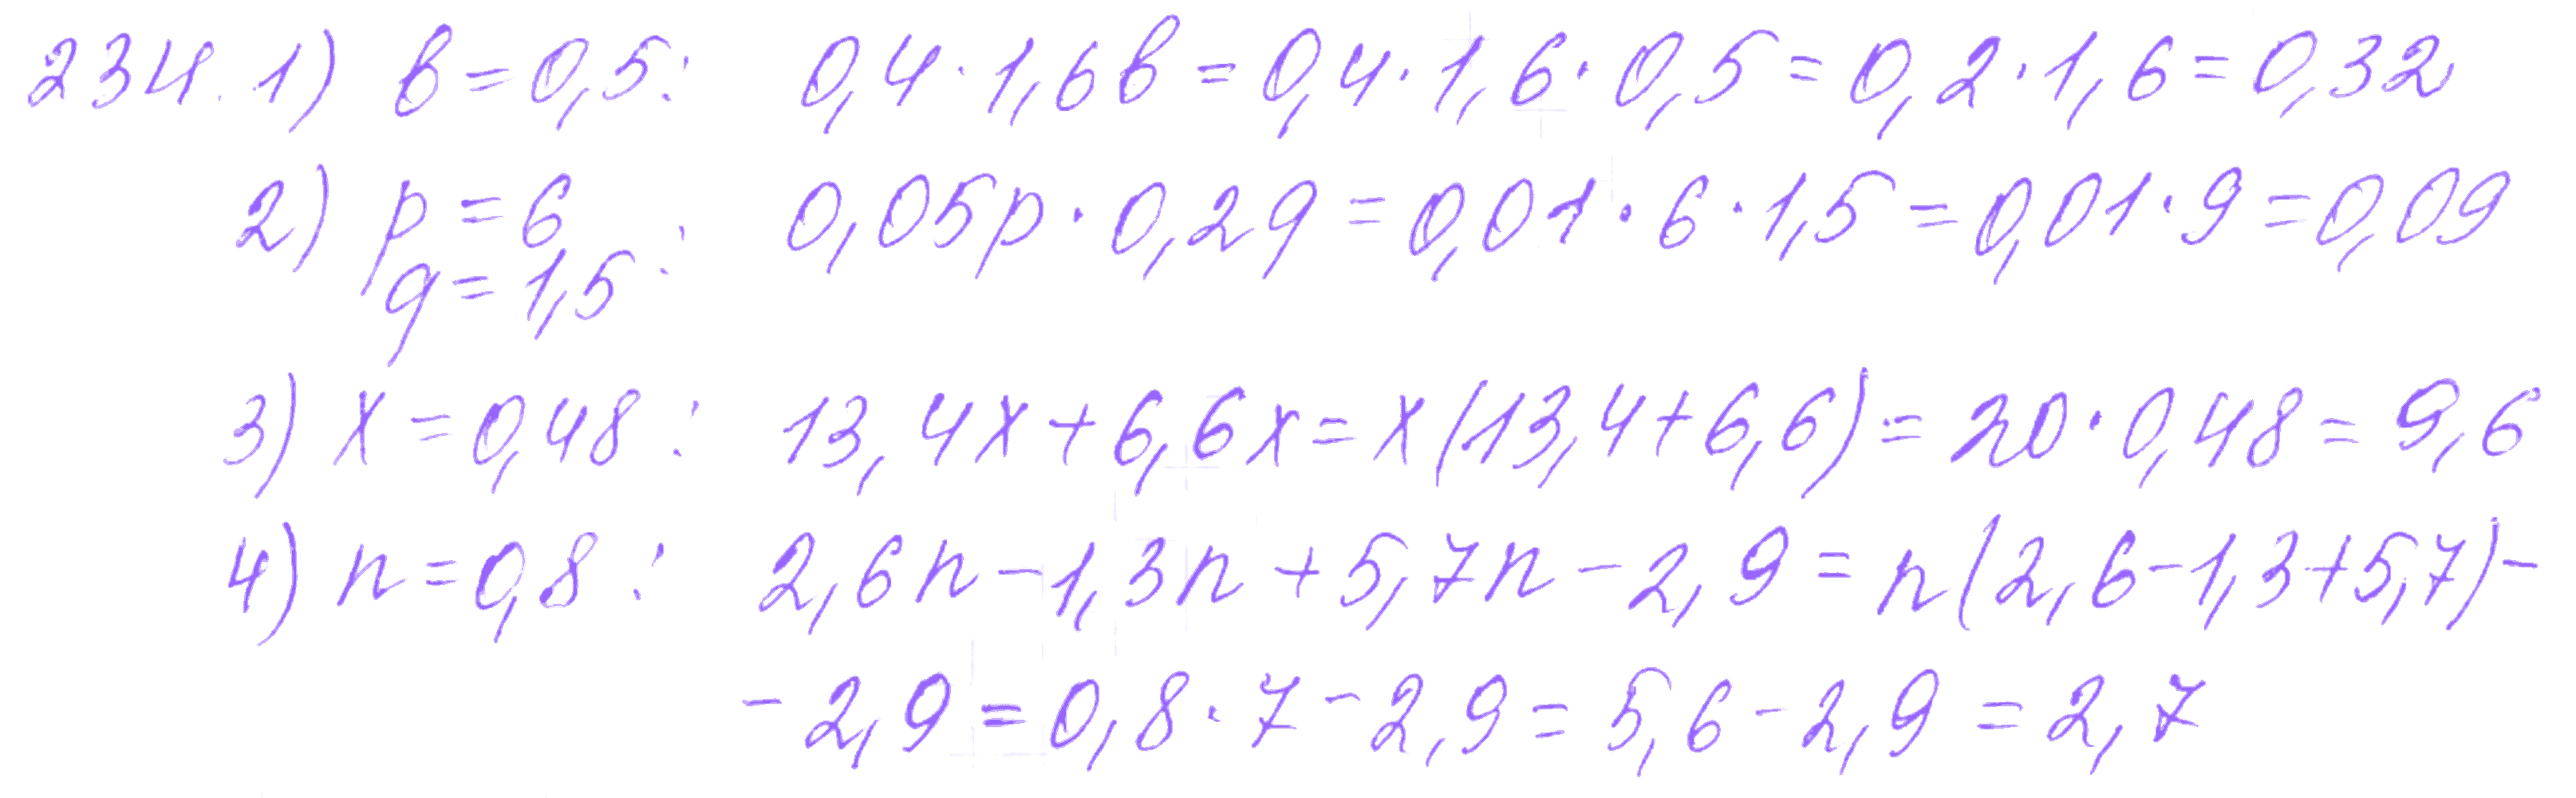 234. 1) b = 0,5: 0,4 · 1,6b = 0,4 · 1,6 · 0,5 = 0,2 · 1,6 = 0,32
2) p = 6
q = 1,5 : 0,05p · 0,2q = 0,01 · 6 · 1,5 = 0,01 · 9 = 0,09
3) x = 0,48 : 13,4x + 6,6x = x(13,4 + 6,6) = 20 · 0,48 = 9,6
4) n = 0,8 : 2,6n - 1,3n + 5,7n - 2,9 = n(2,6 - 1,3 + 5,7) -
- 2,9 = 0,8 · 7 - 2,9 = 5,6 - 2,9 = 2,7